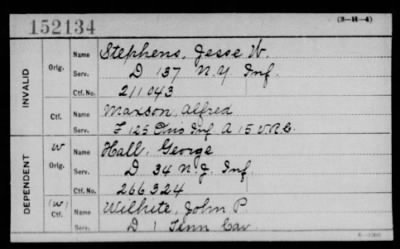 152134
(3-H-4)
INVALID
Orig.
Name Stephens, Jesse W.
Serv. D 137 N.Y. Inf.
Ctf. No. 211043
Ctf.
Name Maxson, Alfred
Serv. F 125 Ohio Inf A 15 V.R.C.
DEPENDENT
W
Orig.
Name Hall, George
Serv. D 34 N.J. Inf.
Ctf. No. 266324
(W)
Ctf.
Name Wilhite, John P.
Serv. D 1 Tenn Cav